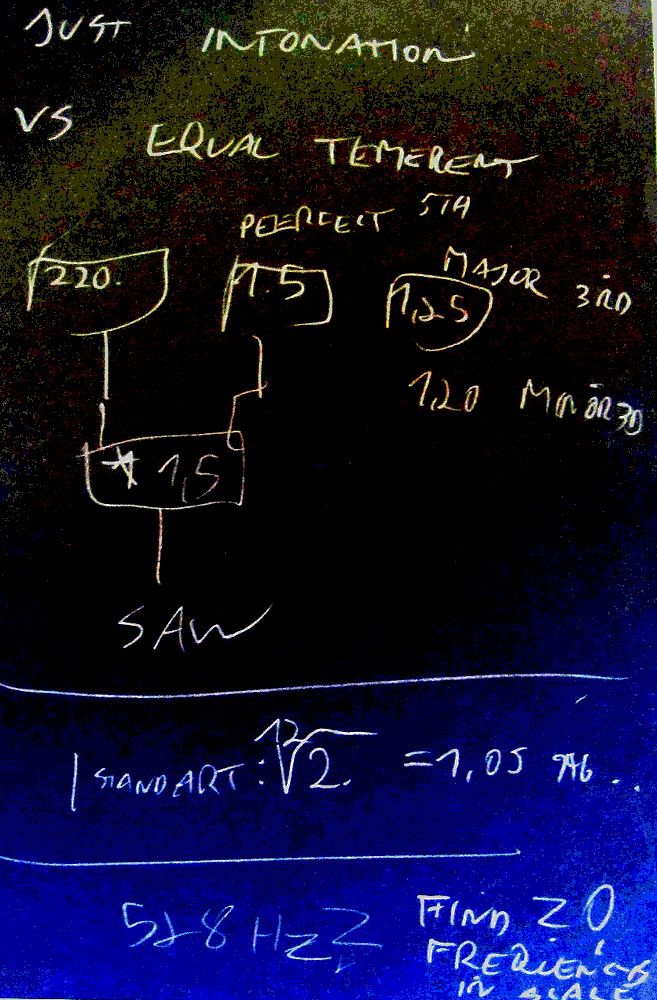 JUST INTONATION
VS EQUAL TEMERENT
PEERFECT 5TH
220. 1.5 1,25 MAJOR 3RD
1,20 MINOR 3D
* 1,5
SAW
STANDART: 12√2. = 1,05
FIND 20
IN